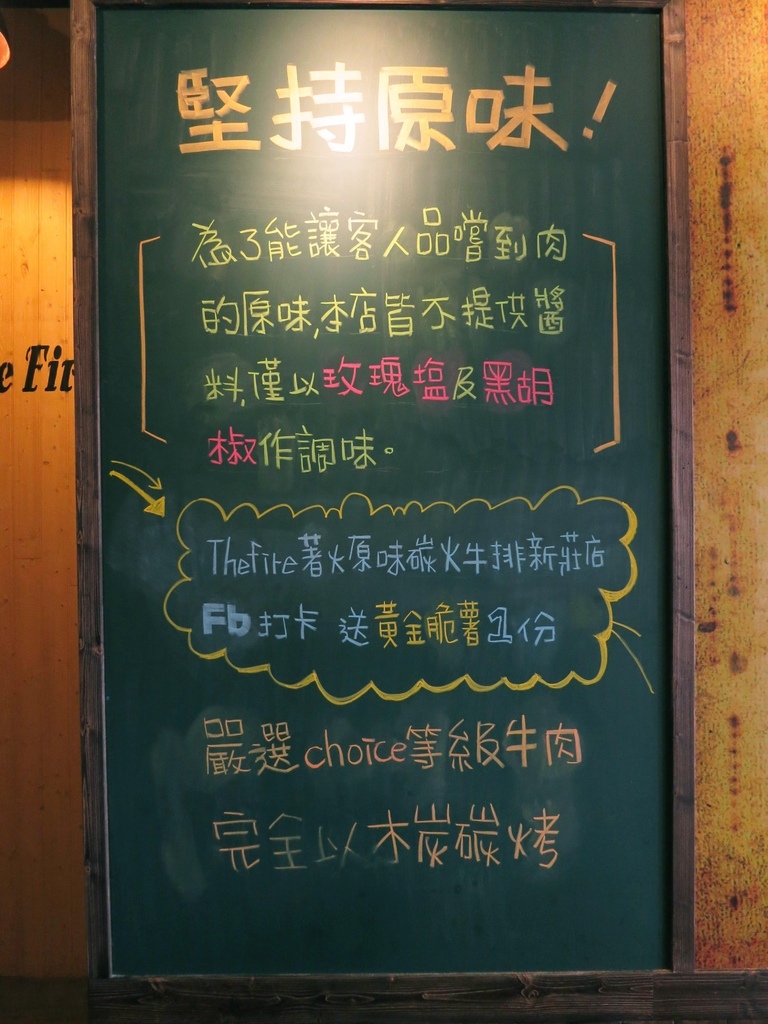 堅持原味！
為了能讓客人品嚐到肉
的原味,本店皆不提供醬
料,僅以玫瑰塩及黑胡
椒作調味。
Thefire著火原味碳火牛排新莊店
Fb打卡 送黃金脆薯1份
嚴選choice等級牛肉
完全以木炭碳烤
e Fir